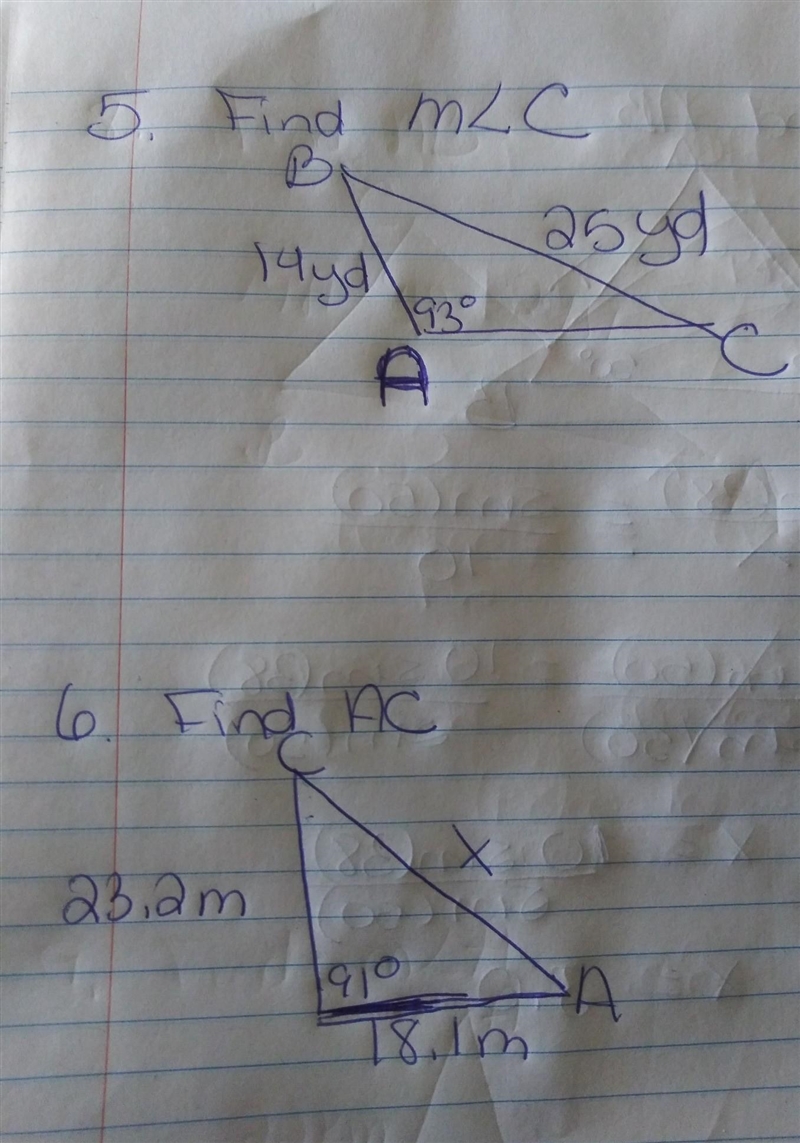 5. Find m∠C
B
25yd
14yd
93°
A
C
6. Find AC
C
x
23.2m
91°
A
18.1m